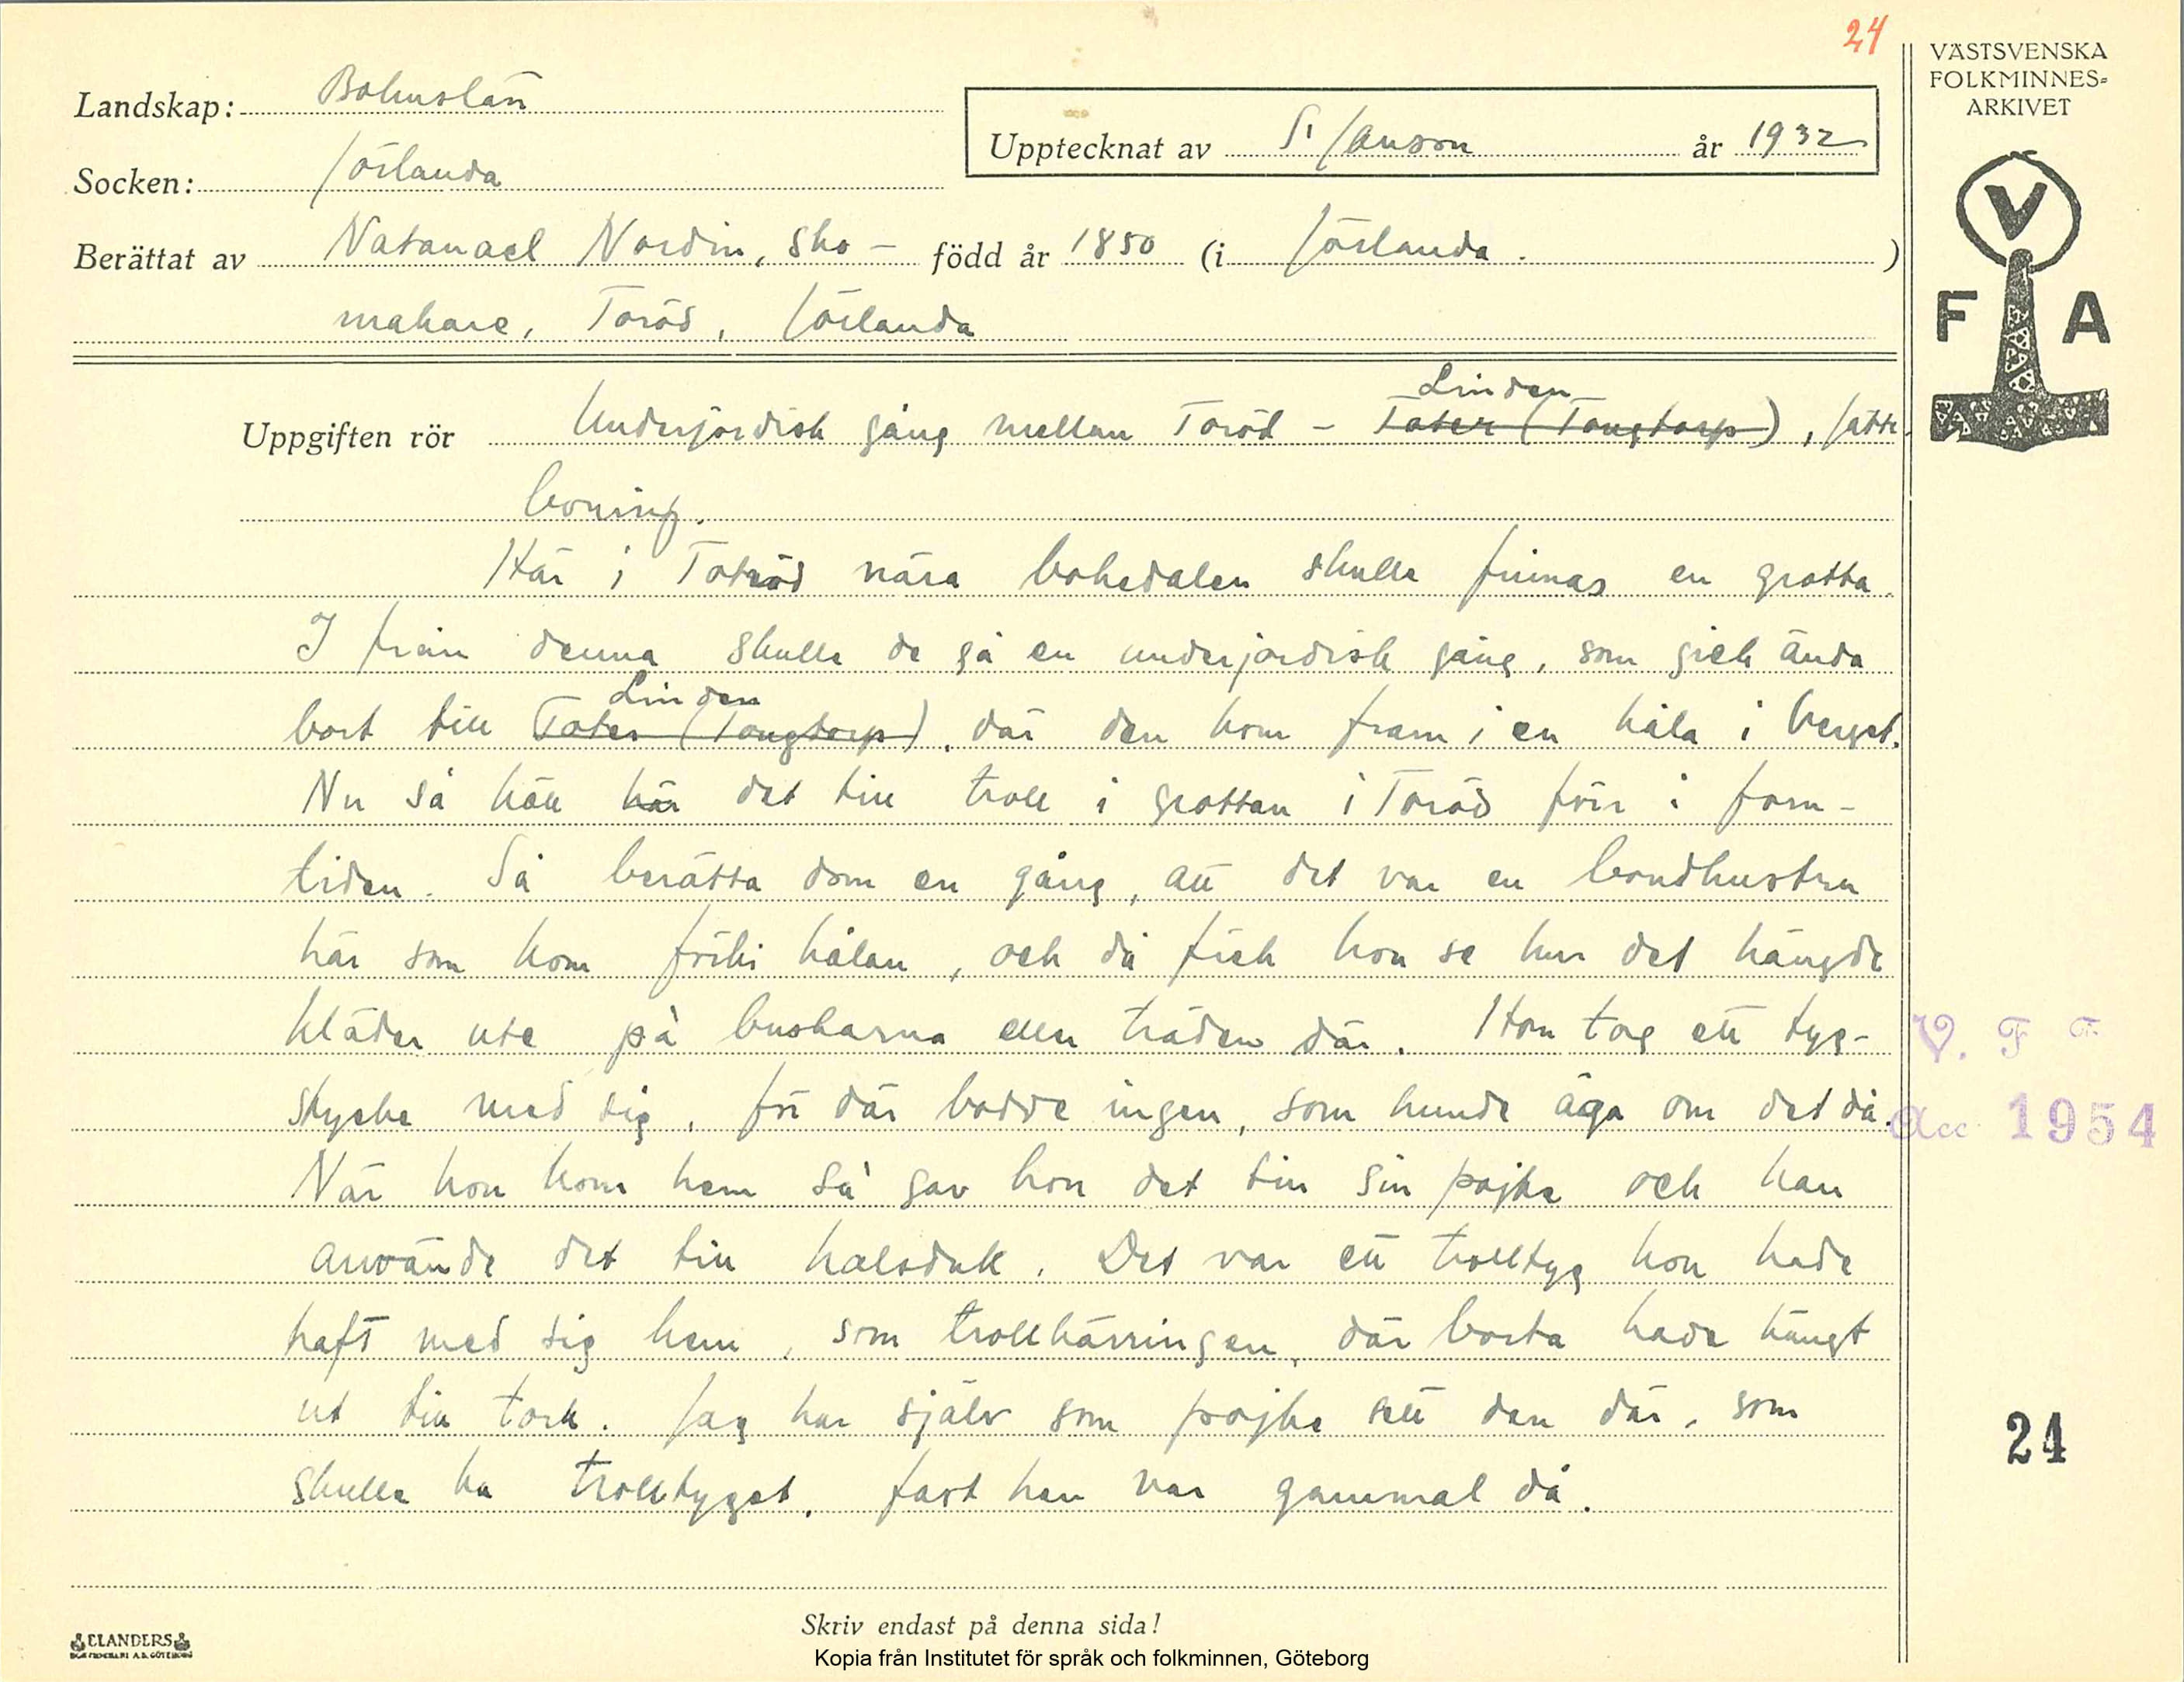 24
VÄSTSVENSKA
FOLKMINNES-
ARKIVET
Landskap: Bohuslän
Upptecknat av S. Janson år 1932
Socken: Jörlanda
Berättat av Natanael Nordin, sko- född år 1850 (i Jörlanda. )
makare, Toröd, Jörlanda
V
F A
Linden
Uppgiften rör Underjordisk gång mellan Toröd - Tater (Tongtorp), jätte-
boning.
Här i Toröd nära bokedalen skulle finnas en grotta.
I från denna skulle de gå en underjordisk gång, som gick ända
Linden
bort till Tater (Tongtorp), där den kom fram i en håla i berget.
Nu så höll här det till troll i grottan i Toröd förr i forn-
tiden. Så berätta dom en gång, att det var en bondhustru
här som kom förbi hålan, och då fick hon se hur det hängde
kläder ute på buskarna eller träden där. Hon tog ett tyg-
stycke med sig, för där bodde ingen, som kunde äga om det då.
När hon kom hem så gav hon det till sin pojke och han
använde det till halsduk. Det var ett trolltyg hon hade
haft med sig hem, som trollkärringen, där borta hade hängt
ut till tork. Jag har själv som pojke sett den där, som
skulle ha trolltyget, fast han var gammal då.
V. F F
Acc. 1954
24
ELANDERS
Skriv endast på denna sida!
Kopia från Institutet för språk och folkminnen, Göteborg